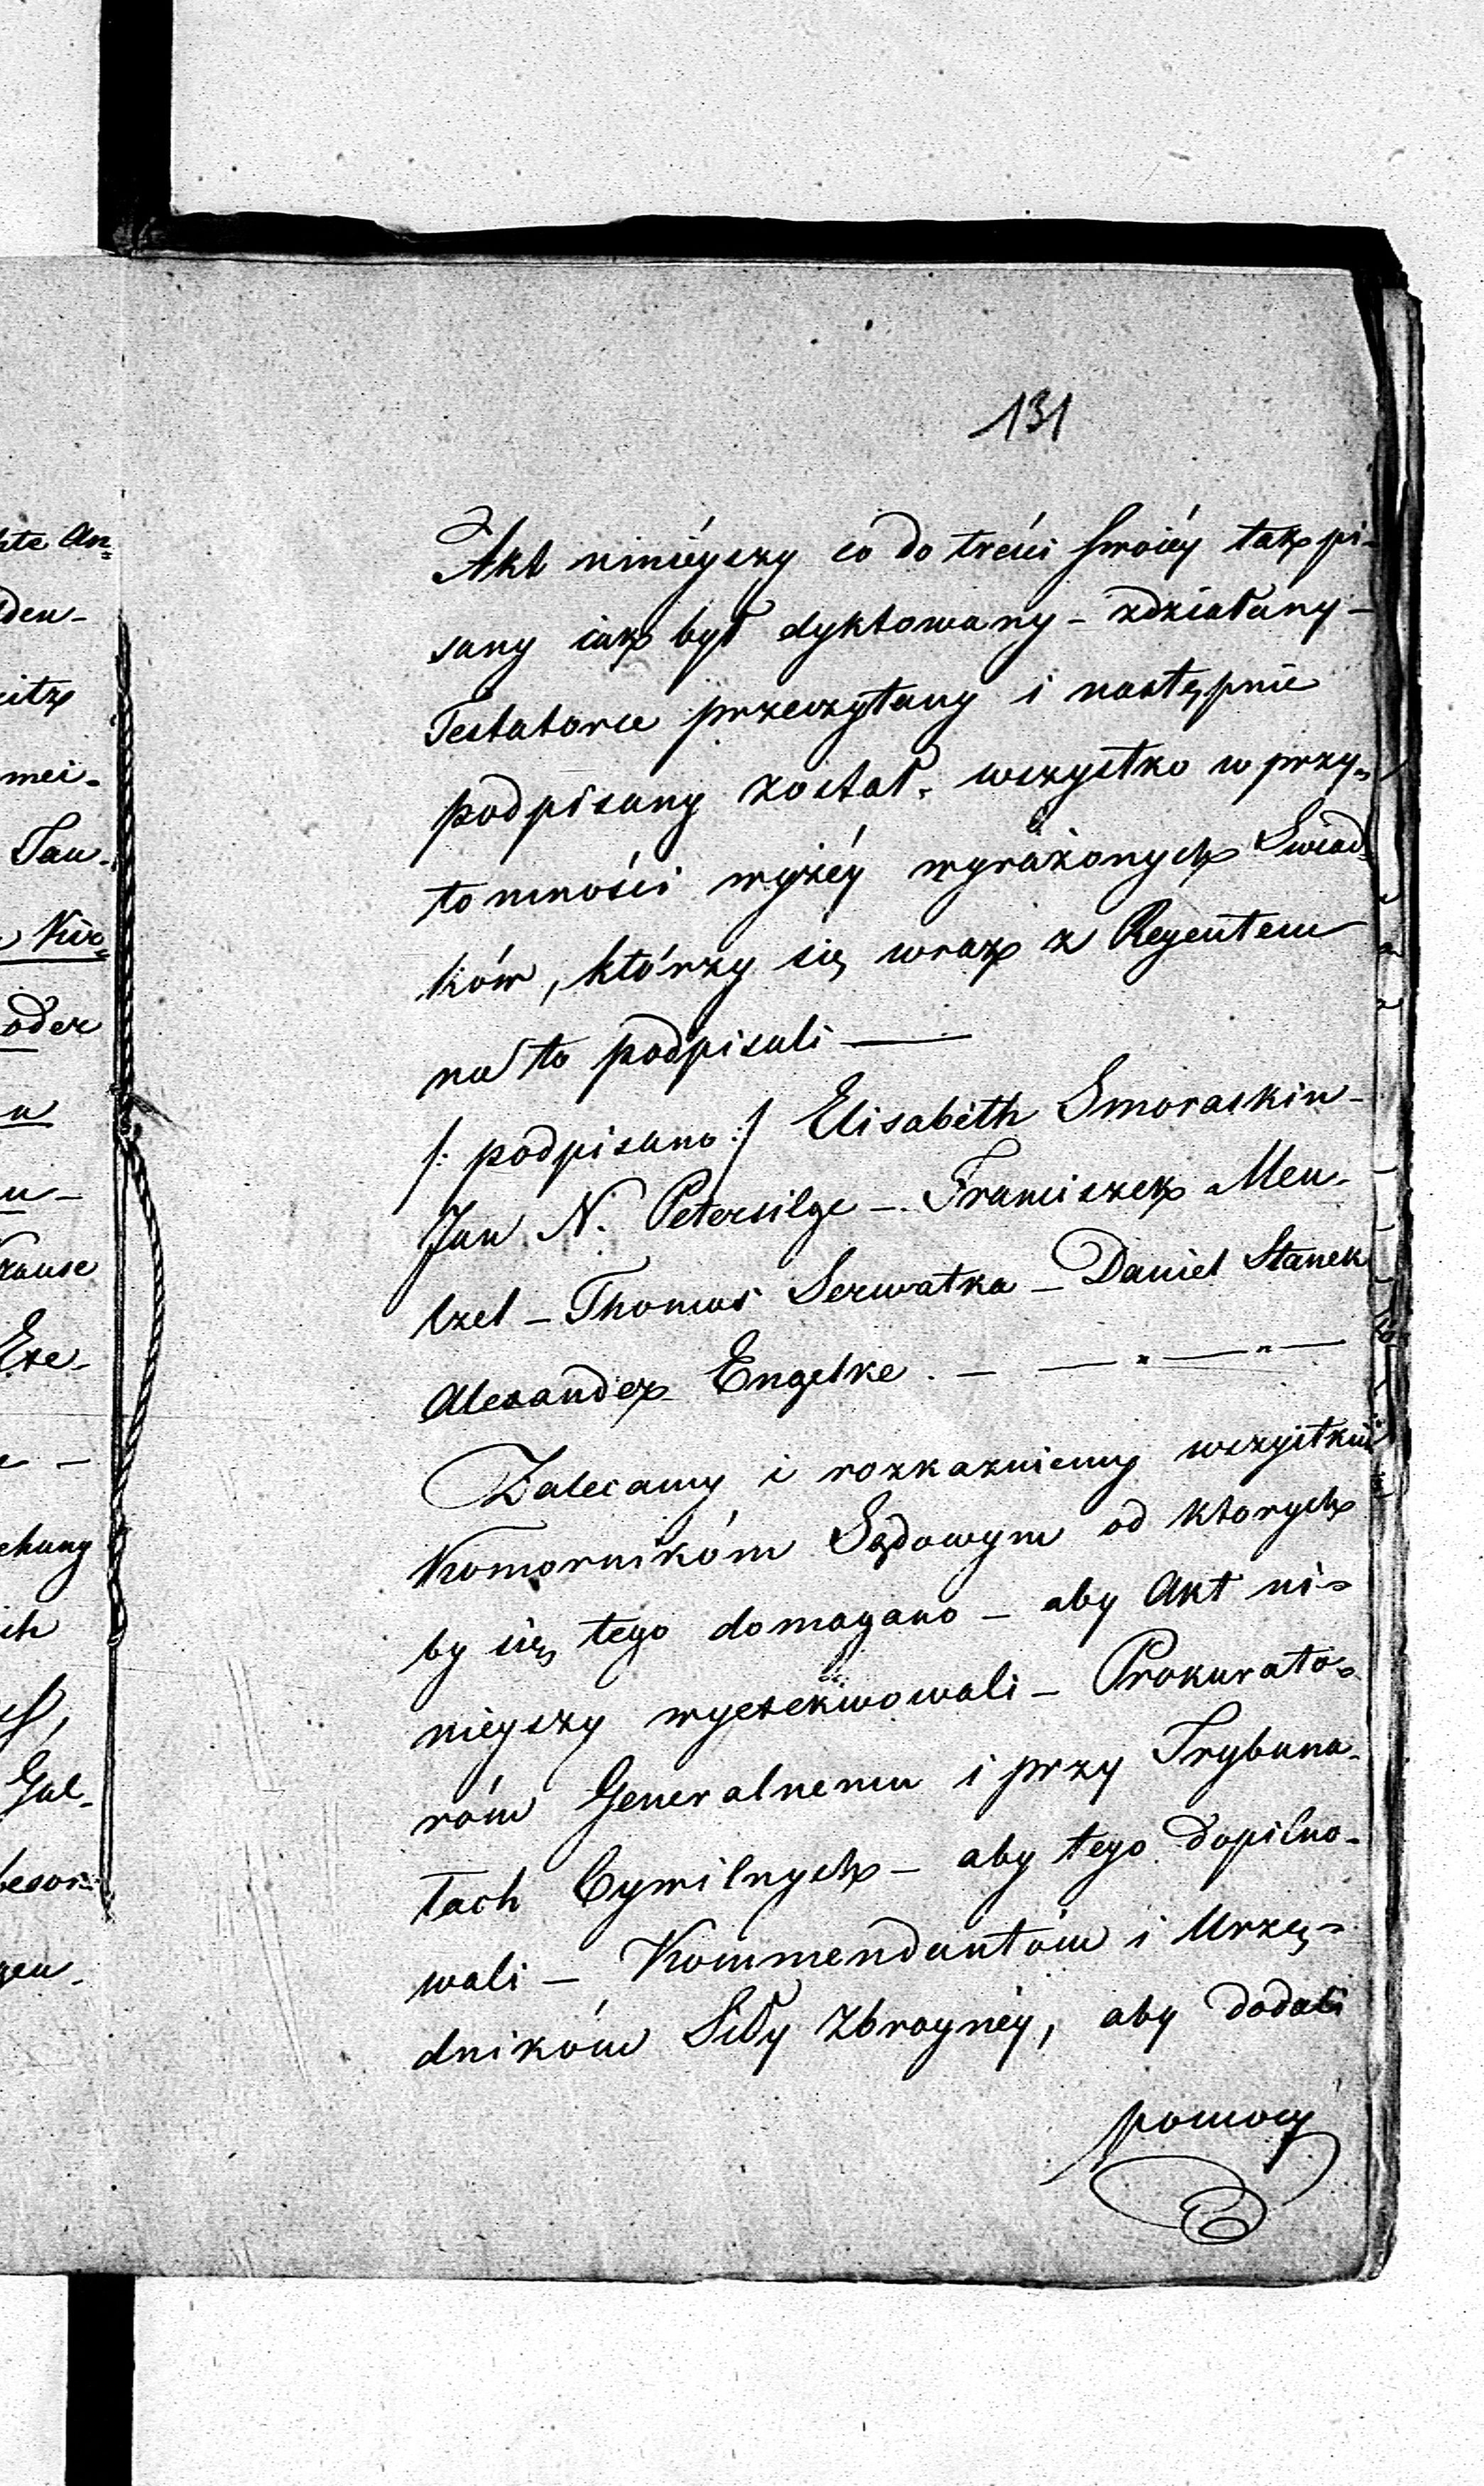 131
Akt ninieyszy co do treści swoiéy tak pi-
sany iak był dyktowany - zdziałany -
Testatorce przeczytany i następnie
podpisany został, wszystko w przy-
tomności wyżéy wyrażonych Swiad-
ków, którzy się wraz z Regentem
na to podpisali ——
/: podpisano :/ Elisabeth Smoraskin -
Jan N. Petersilge - Franciszek Men-
tzel - Thomas Serwatka - Daniel Stanek
Alexander Engelke. - — " — " —
Zalecamy i rozkazuiemy wszystkim
Komornikóm Sądowym od ktorych
by się tego domagano - aby Akt ni=
nieyszy wyexekwowali - Prokurato=
róm Generalnemu i przy Trybuna-
łach Cywilnych - aby tego dopilno-
wali - Kommendantóm i Urzę=
dnikóm Siły Zbroynéy, aby dodali
pomocy
hte An=
den-
mei-
Tau-
Kir=
oder
u
u-
Krause
Exe-
chung
ich
Gal-
gen-